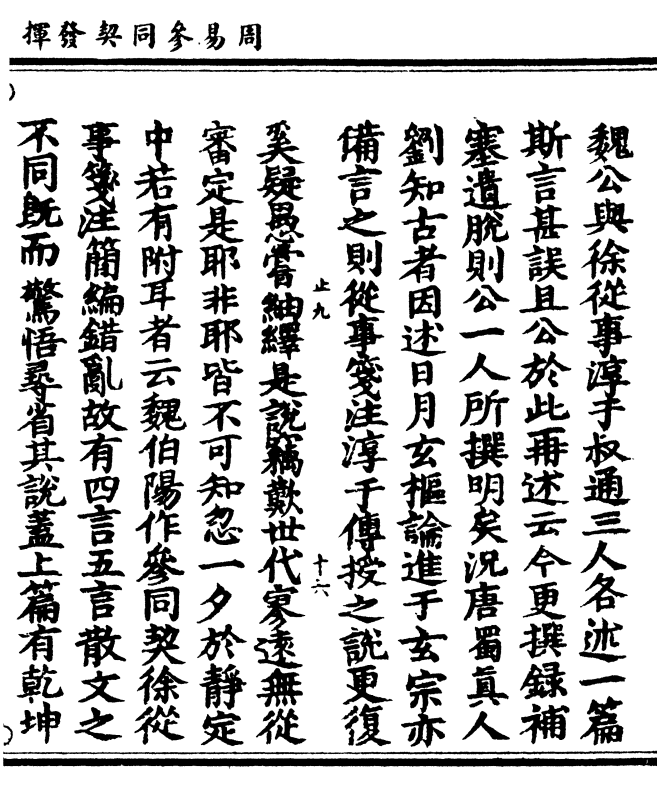 周易參同契發揮
魏公與徐從事淳于叔通三人各述一篇
斯言甚誤且公於此再述云今更撰録補
塞遺脫則公一人所撰明矣況唐蜀真人
劉知古者因述日月玄樞論進于玄宗亦
備言之則從事箋注淳于傳授之說更復
止九
十六
奚疑愚嘗紬繹是說竊歎世代寥遠無從
審定是耶非耶皆不可知忽一夕於靜定
中若有附耳者云魏伯陽作參同契徐從
事箋注簡編錯亂故有四言五言散文之
不同既而驚悟尋省其說蓋上篇有乾坤